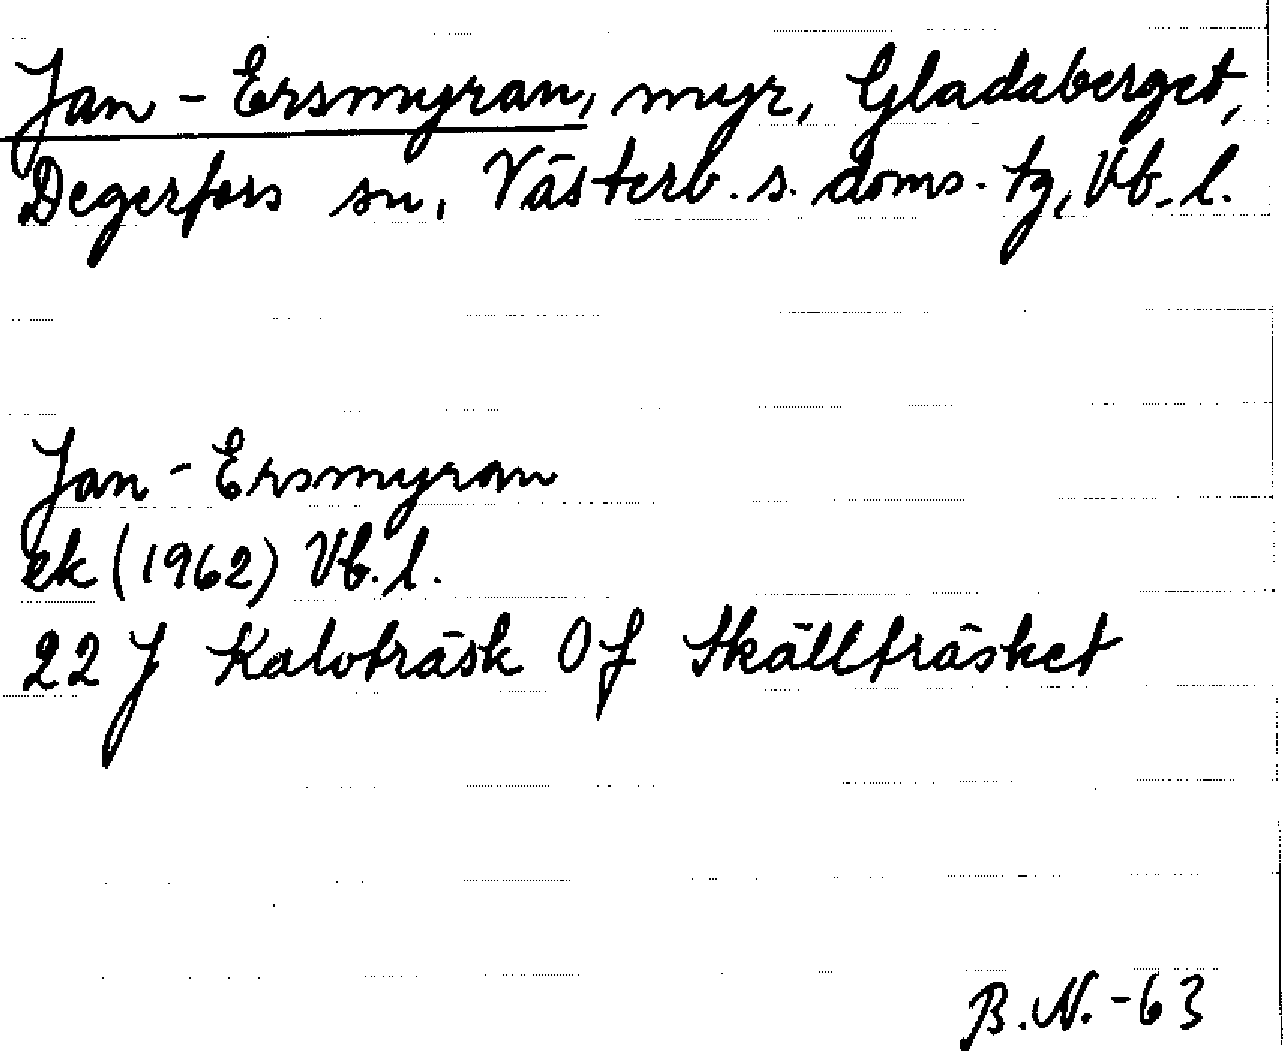 Jan-Ersmyran, myr, Gladaberget,
Degerfors sn, Västerb. s. doms. tg, Vb. l.
Jan-Ersmyran
ek (1962) Vb. l.
22 J Kalvträsk 0 f Skällträsket
B.N. -63